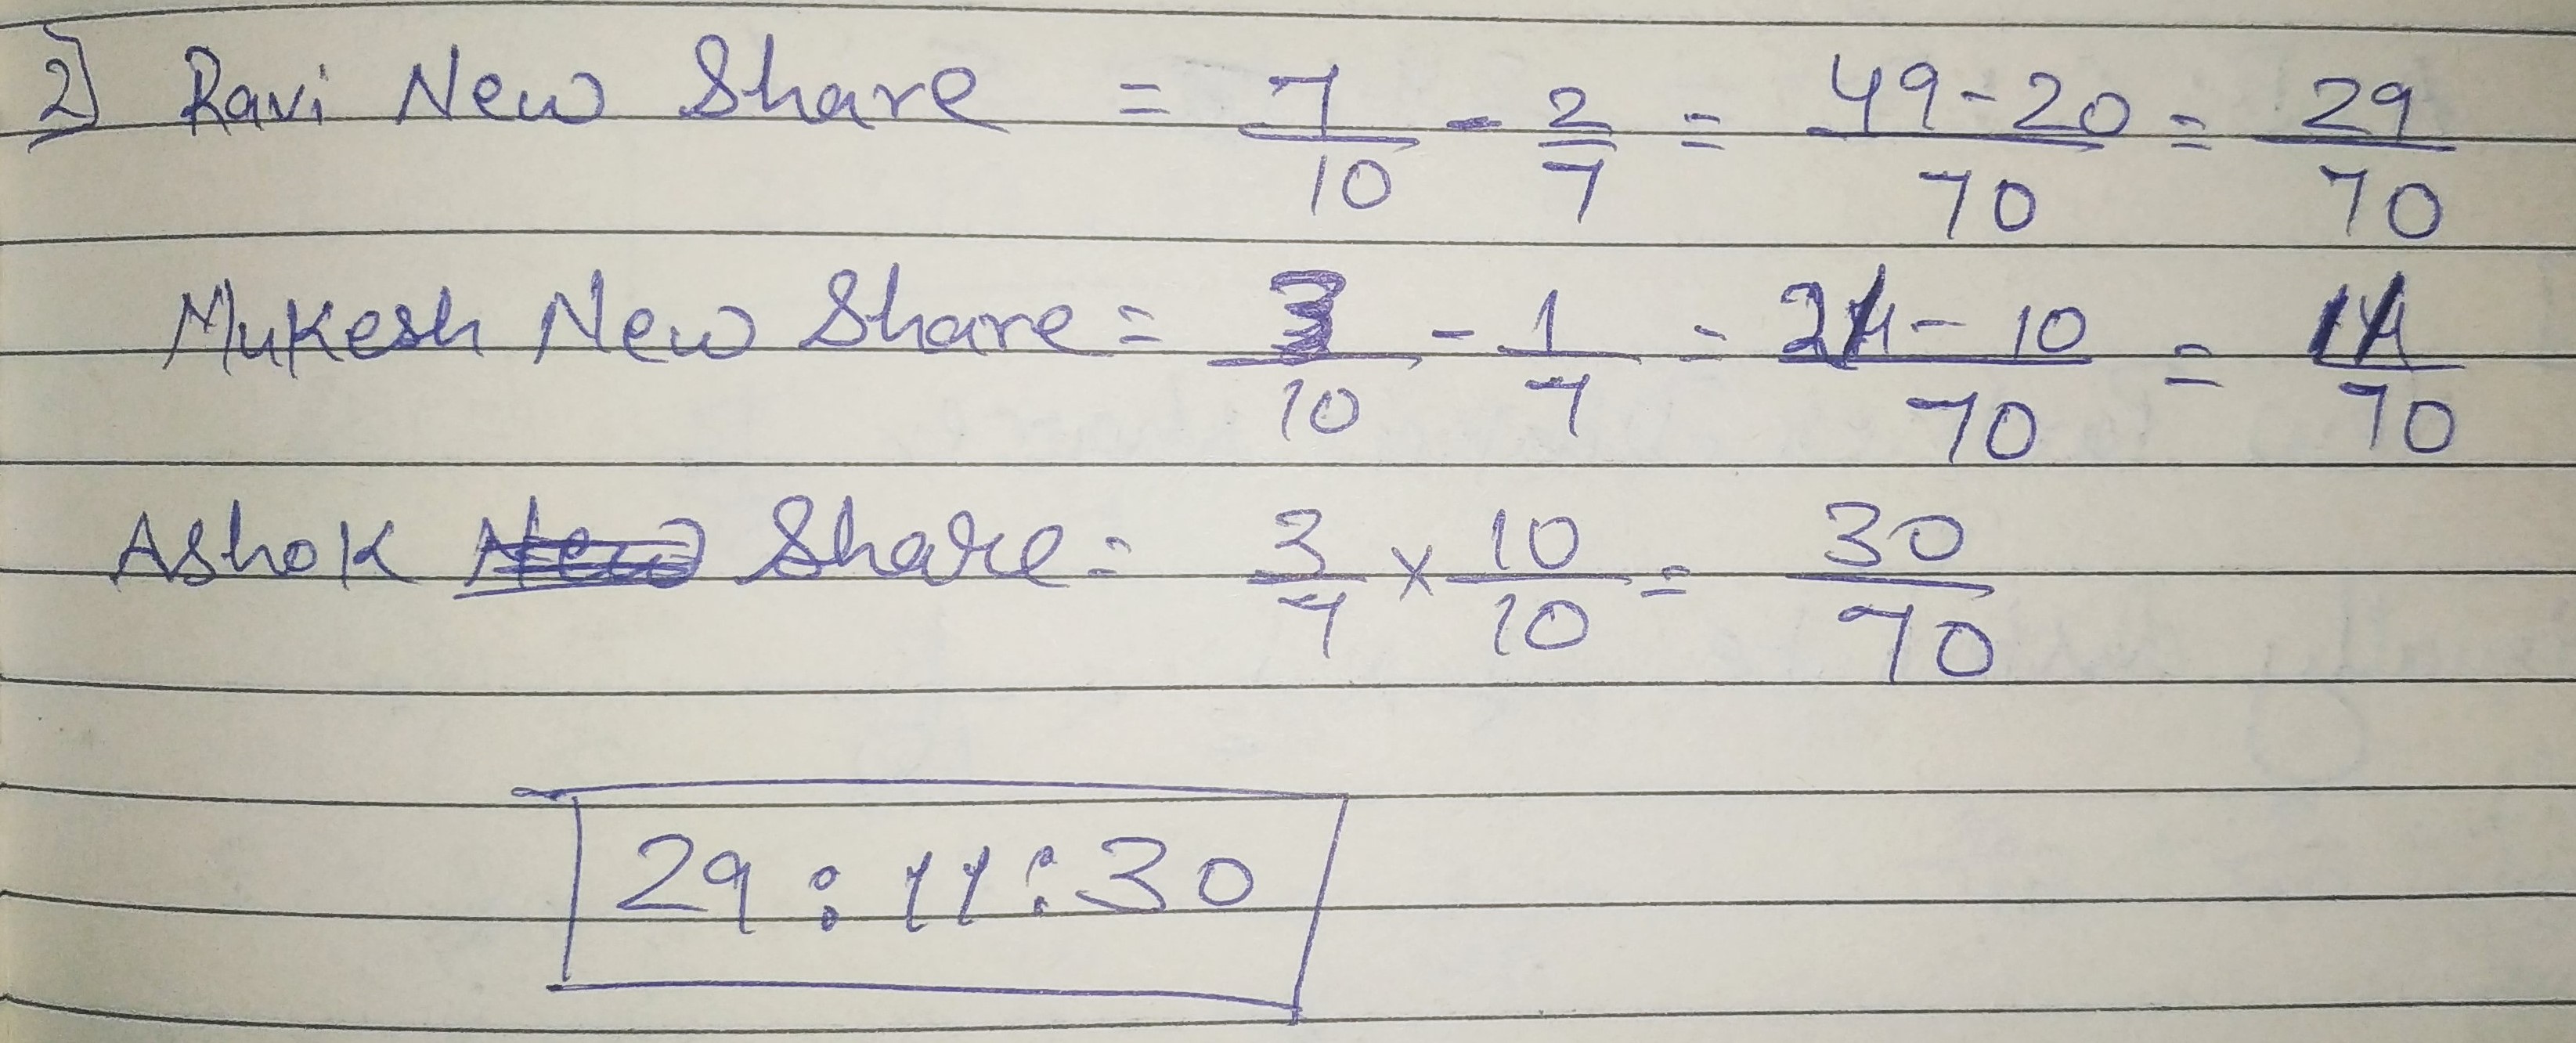 2] Ravi New Share = 7/10 - 2/7 = 49-20/70 = 29/70
Mukesh New Share = 3/10 - 1/7 = 21-10/70 = 11/70
Ashok Share = 3/7 × 10/10 = 30/70
29:11:30